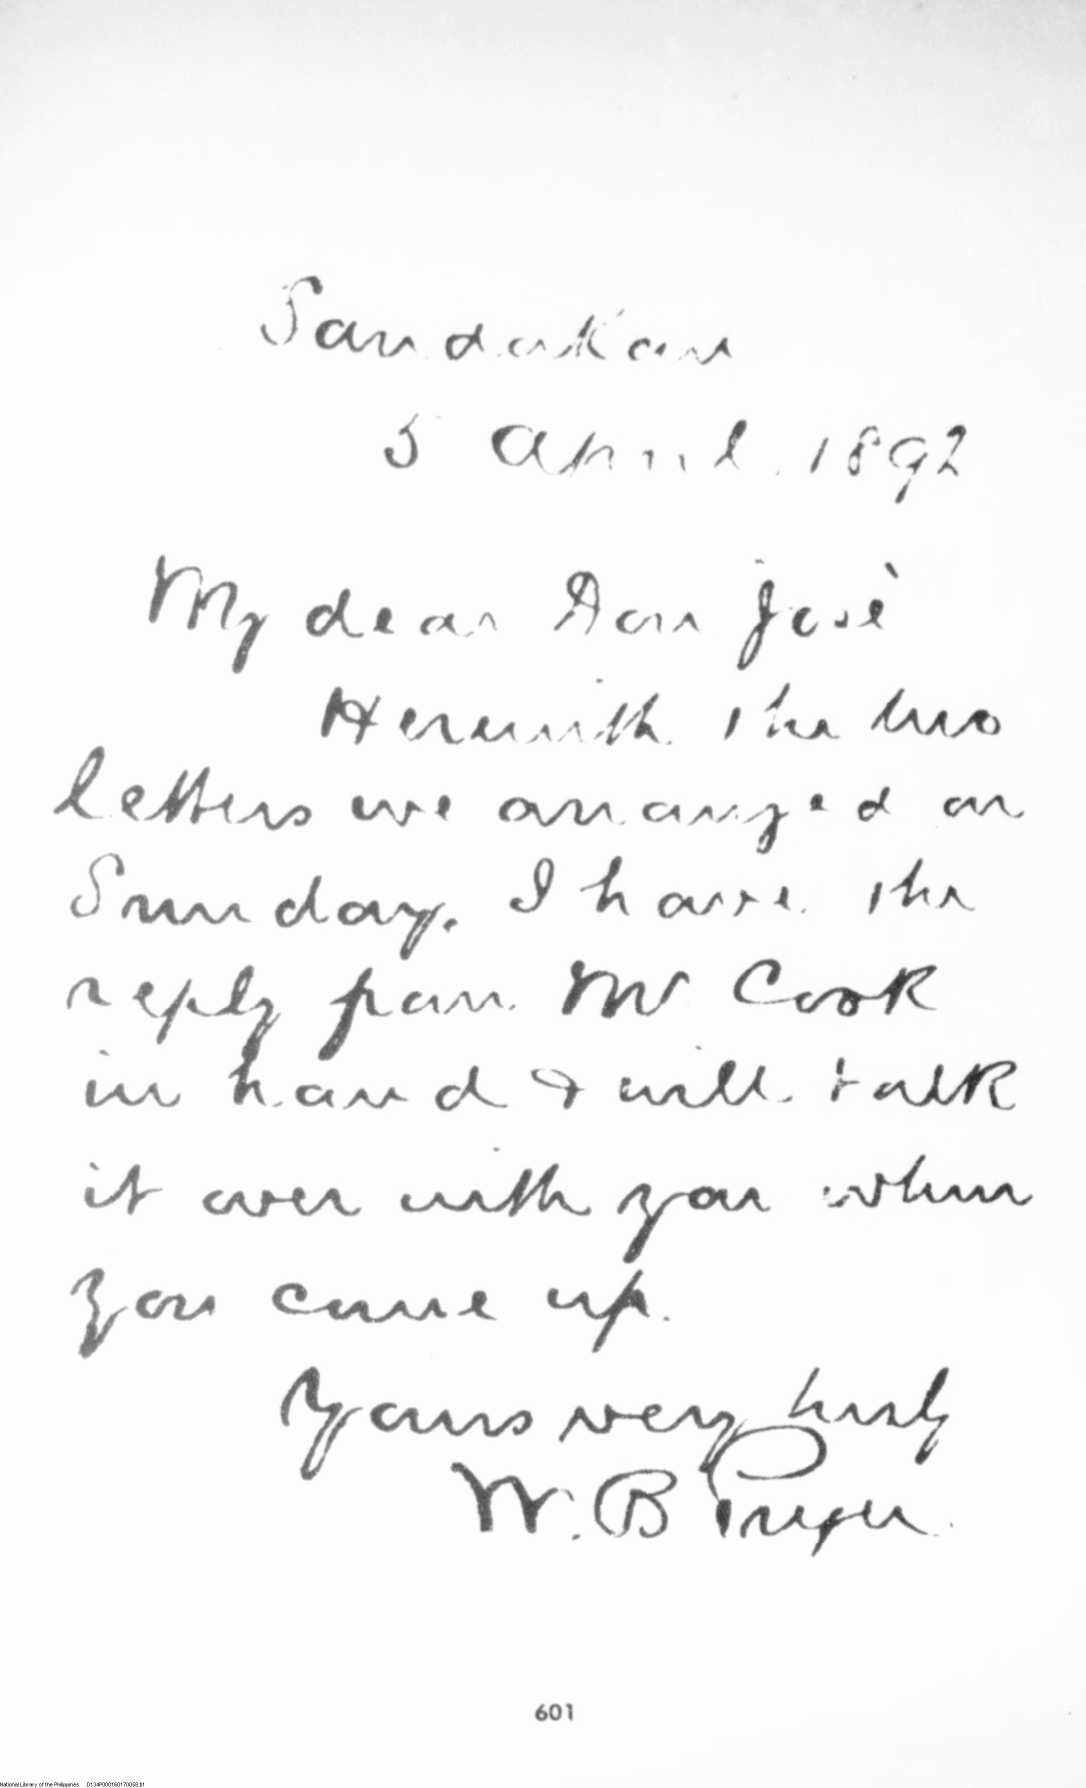 Sandakan
5 April. 1892
My dear Don José
Herewith the two
letters we arranged on
Sunday. I have the
reply from Mr Cook
in hand & will talk
it over with you when
you come up.
Yours very truly
W. B Pryer.
601
National Library of the Philippines D134P000160170058.tif